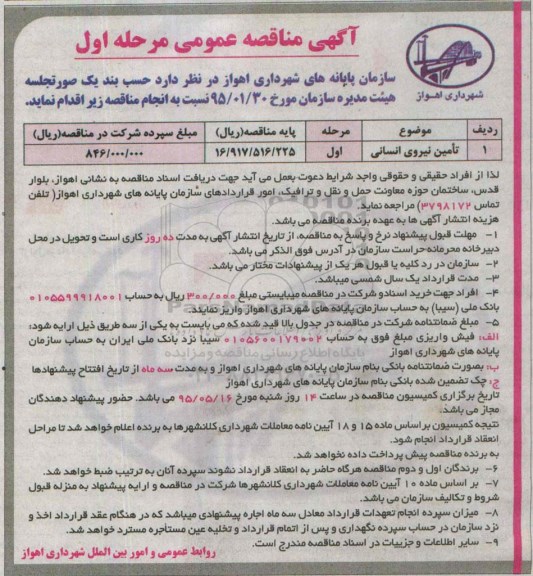 آگهی مناقصه عمومی مرحله اول
شهرداری اهواز
سازمان پایانه های شهرداری اهواز در نظر دارد حسب بند یک صورتجلسه
هیئت مدیره سازمان مورخ ۹۵/۰۱/۳۰ نسبت به انجام مناقصه زیر اقدام نماید.
ردیف موضوع مرحله پایه مناقصه(ریال) مبلغ سپرده شرکت در مناقصه(ریال)
۱ تأمین نیروی انسانی اول ۱۶/۹۱۷/۵۱۶/۲۲۵ ۸۴۶/۰۰۰/۰۰۰
لذا از افراد حقیقی و حقوقی واجد شرایط دعوت بعمل می آید جهت دریافت اسناد مناقصه به نشانی اهواز، بلوار
قدس، ساختمان حوزه معاونت حمل و نقل و ترافیک، امور قراردادهای سازمان پایانه های شهرداری اهواز( تلفن
تماس ۳۷۹۸۱۷۲) مراجعه نماید.
هزینه انتشار آگهی ها به عهده برنده مناقصه می باشد.
۱- مهلت قبول پیشنهاد نرخ و پاسخ به مناقصه، از تاریخ انتشار آگهی به مدت ده روز کاری است و تحویل در محل
دبیرخانه محرمانه حراست سازمان در آدرس فوق الذکر می باشد.
۲- سازمان در رد کلیه یا قبول هر یک از پیشنهادات مختار می باشد.
۳- مدت قرارداد یک سال شمسی میباشد.
۴- افراد جهت خرید اسناد و شرکت در مناقصه میبایستی مبلغ ۳۰۰/۰۰۰ ریال به حساب ۰۱۰۵۵۹۹۹۱۸۰۰۱
بانک ملی (سیبا) به حساب سازمان پایانه های شهرداری اهواز واریز نمایند.
۵- مبلغ ضمانتنامه شرکت در مناقصه در جدول بالا قید شده که می بایست به یکی از سه طریق ذیل ارایه شود:
الف: فیش واریزی مبلغ فوق به حساب ۰۱۰۵۶۰۰۱۷۹۰۰۲ سیبا نزد بانک ملی ایران به حساب سازمان
پایانه های شهرداری اهواز
ب: بصورت ضمانتنامه بانکی بنام سازمان پایانه های شهرداری اهواز و به مدت سه ماه از تاریخ افتتاح پیشنهادها
ج: چک تضمین شده بانکی بنام سازمان پایانه های شهرداری اهواز
تاریخ برگزاری کمیسیون مناقصه در ساعت ۱۴ روز شنبه مورخ ۹۵/۰۵/۱۶ می باشد. حضور پیشنهاد دهندگان
مجاز می باشد.
نتیجه کمیسیون بر اساس ماده ۱۵ و ۱۸ آیین نامه معاملات شهرداری کلانشهرها به برنده اعلام خواهد شد تا مراحل
انعقاد قرارداد انجام شود.
به برنده مناقصه پیش پرداخت داده نخواهد شد.
۶- برندگان اول و دوم مناقصه هرگاه حاضر به انعقاد قرارداد نشوند سپرده آنان به ترتیب ضبط خواهد شد.
۷- بر اساس ماده ۱۰ آیین نامه معاملات شهرداری کلانشهرها شرکت در مناقصه و ارایه پیشنهاد به منزله قبول
شروط و تکالیف سازمان می باشد.
۸- میزان سپرده انجام تعهدات قرارداد معادل سه ماه اجاره پیشنهادی میباشد که در هنگام عقد قرارداد اخذ و
نزد سازمان در حساب سپرده نگهداری و پس از اتمام قرارداد و تخلیه عین مستأجره مسترد خواهد شد.
۹- سایر اطلاعات و جزییات در اسناد مناقصه مندرج است.
روابط عمومی و امور بین الملل شهرداری اهواز